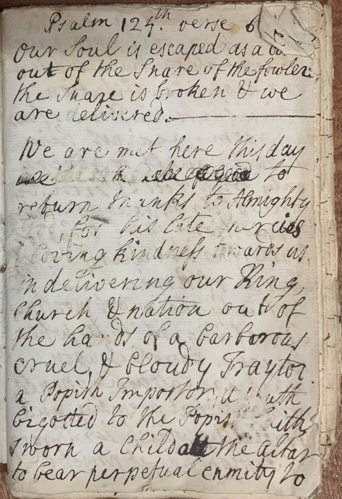 Psalm 124th. verse 6
Our Soul is escaped as a
out of the Snare of the fowler:
the Snare is broken & we
are delivered.
We are met here this day
to
return thanks to Almighty
for his late mercies
loving kindness towards us
in delivering our King,
Church & nation out of
the hands of a barborous
cruel, & bloody Traytor
a Popish Impostor,
bigotted to the Popish
sworn a Child at the altar
to bear perpetual enmity to